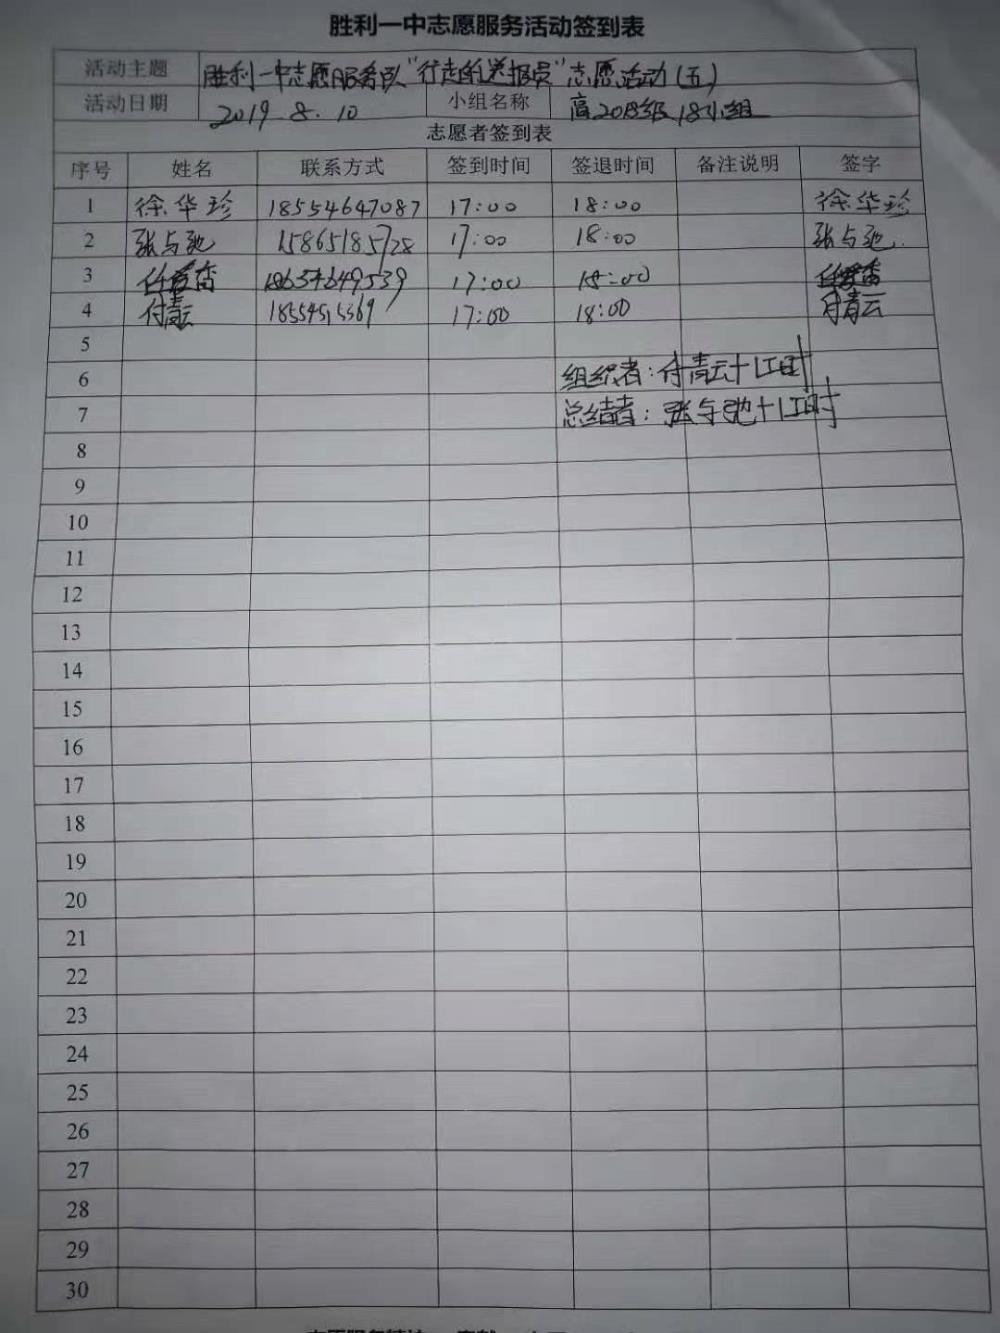 胜利一中志愿服务活动签到表
活动主题 胜利一中志愿服务队“行走的送报员”志愿活动(五)
活动日期 2019.8.10 小组名称 高2018级18小组
志愿者签到表
序号 姓名 联系方式 签到时间 签退时间 备注说明 签字
1 徐华珍 18554647087 17:00 18:00 徐华珍
2 张与弛 15865185728 17:00 18:00 张与弛
3 18654649539 17:00 18:00
4 付青云 17:00 18:00 付青云
5
6 组织者:付青云+1工时
7 总结者:张与弛+1工时
8
9
10
11
12
13
14
15
16
17
18
19
20
21
22
23
24
25
26
27
28
29
30